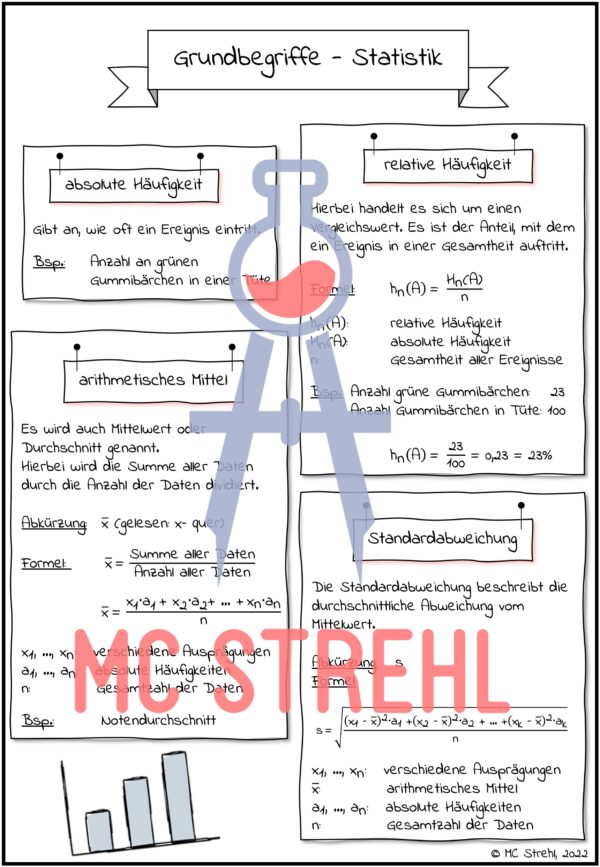 Grundbegriffe - Statistik
absolute Häufigkeit
Gibt an, wie oft ein Ereignis eintritt.
Bsp.: Anzahl an grünen
Gummibärchen in einer Tüte
relative Häufigkeit
Hierbei handelt es sich um einen
Vergleichswert. Es ist der Anteil, mit dem
ein Ereignis in einer Gesamtheit auftritt.
Formel: hn(A) = Hn(A)/n
hn(A): relative Häufigkeit
Hn(A): absolute Häufigkeit
n: Gesamtheit aller Ereignisse
Bsp.: Anzahl grüne Gummibärchen: 23
Anzahl Gummibärchen in Tüte: 100
hn(A) = 23/100 = 0,23 = 23%
arithmetisches Mittel
Es wird auch Mittelwert oder
Durchschnitt genannt.
Hierbei wird die Summe aller Daten
durch die Anzahl der Daten dividiert.
Abkürzung: x̅ (gelesen: x- quer)
Formel: x̅ = Summe aller Daten/Anzahl aller Daten
x̅ = x1·a1 + x2·a2 + ... + xn·an/n
x1, ..., xn: verschiedene Ausprägungen
a1, ..., an: absolute Häufigkeiten
n: Gesamtzahl der Daten
Bsp.: Notendurchschnitt
Standardabweichung
Die Standardabweichung beschreibt die
durchschnittliche Abweichung vom
Mittelwert.
Abkürzung: s
Formel:
s = √((x1 - x̅)²·a1 + (x2 - x̅)²·a2 + ... + (xk - x̅)²·ak/n)
x1, ..., xn: verschiedene Ausprägungen
x̅: arithmetisches Mittel
a1, ..., an: absolute Häufigkeiten
n: Gesamtzahl der Daten
MC STREHL
© MC Strehl, 2022